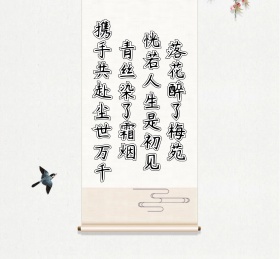 落花醉了梅苑
恍若人生是初见
青丝染了霜烟
携手共赴尘世万千